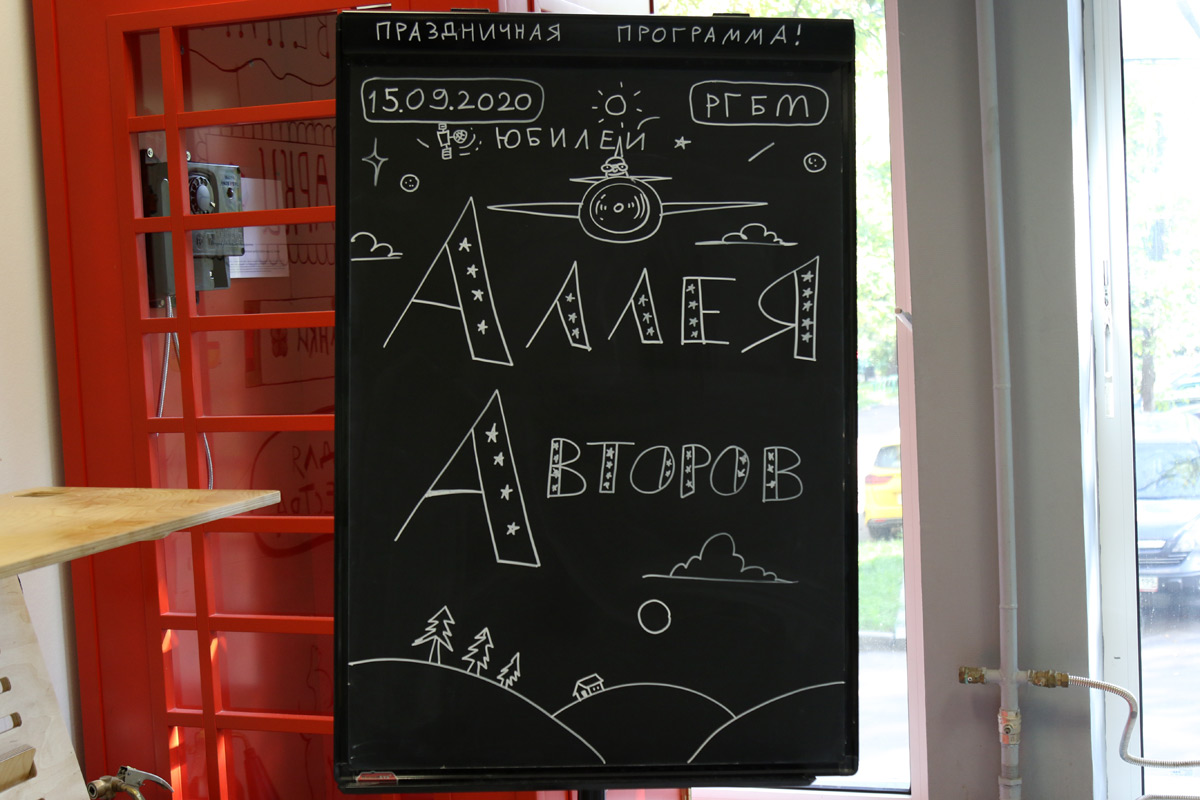 ПРАЗДНИЧНАЯ ПРОГРАММА!
15.09.2020 РГБМ
ЮБИЛЕЙ
АЛЛЕЯ
АВТОРОВ